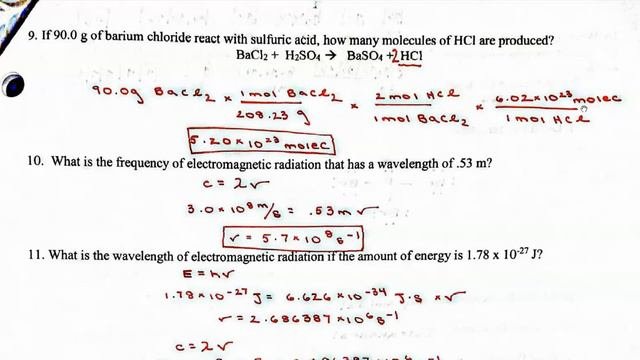 9. If 90.0 g of barium chloride react with sulfuric acid, how many molecules of HCl are produced?
BaCl2 + H2SO4 → BaSO4 + 2 HCl
90.0g BaCl2 × 1 mol BaCl2 / 208.23 g × 2 mol HCl / 1 mol BaCl2 × 6.02 × 10^23 molec / 1 mol HCl
5.20 × 10^23 molec
10. What is the frequency of electromagnetic radiation that has a wavelength of .53 m?
c = λν
3.0 × 10^8 m/s = .53 m ν
ν = 5.7 × 10^8 s^-1
11. What is the wavelength of electromagnetic radiation if the amount of energy is 1.78 x 10^-27 J?
E = hν
1.78 × 10^-27 J = 6.626 × 10^-34 J·s × ν
ν = 2.686387 × 10^6 s^-1
c = λν